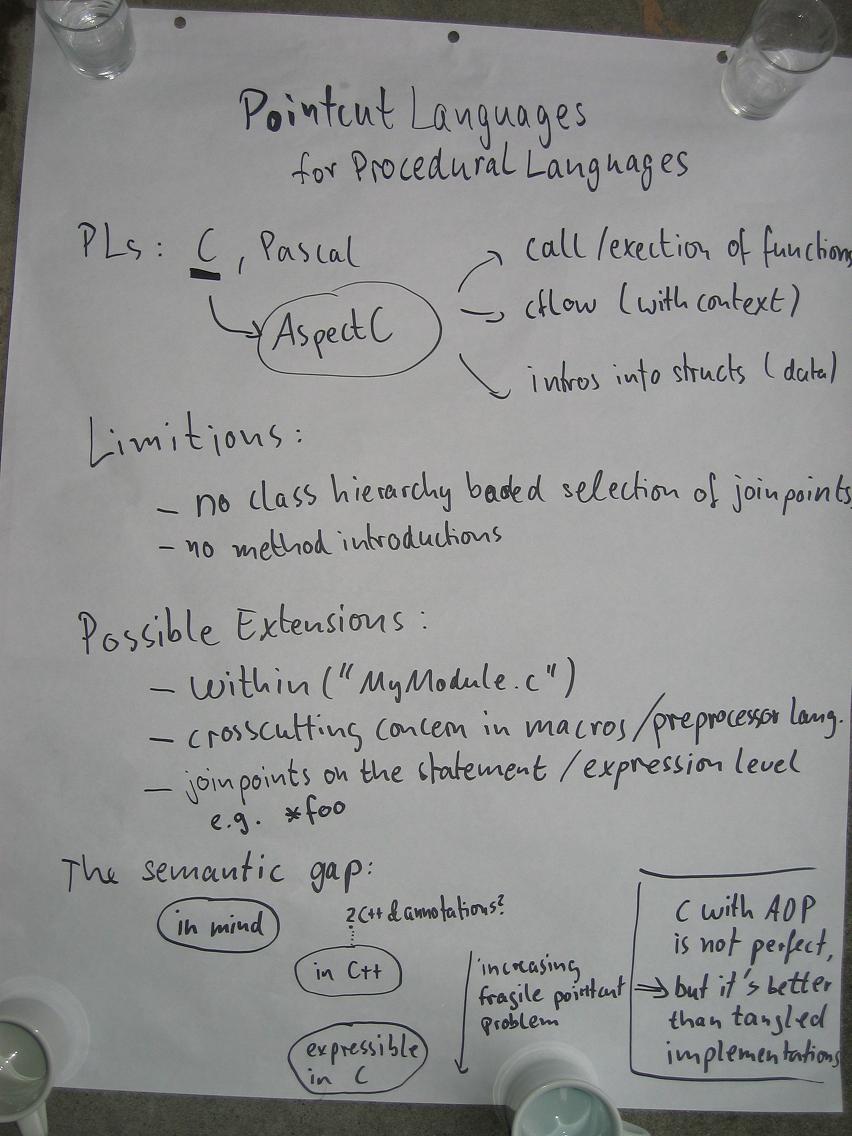 Pointcut Languages
for Procedural Languages
PLs: C, Pascal
AspectC
call/exection of functions
cflow (with context)
intros into structs (data)
Limitions:
- no class hierarchy baded selection of joinpoints
- no method introductions
Possible Extensions:
- within ("MyModule.c")
- crosscutting concern in macros/preprocessor lang.
- joinpoints on the statement/expression level
e.g. *foo
The semantic gap:
in mind
?C++ & annotations?
in C++
expressible
in C
increasing
fragile pointcut
problem
C with AOP
is not perfect,
but it's better
than tangled
implementations